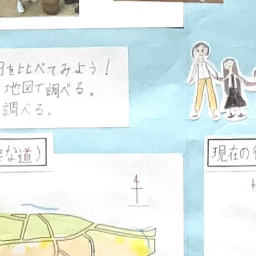 を比べてみよう！
地図で調べる。
調べる。
な道）
現在の